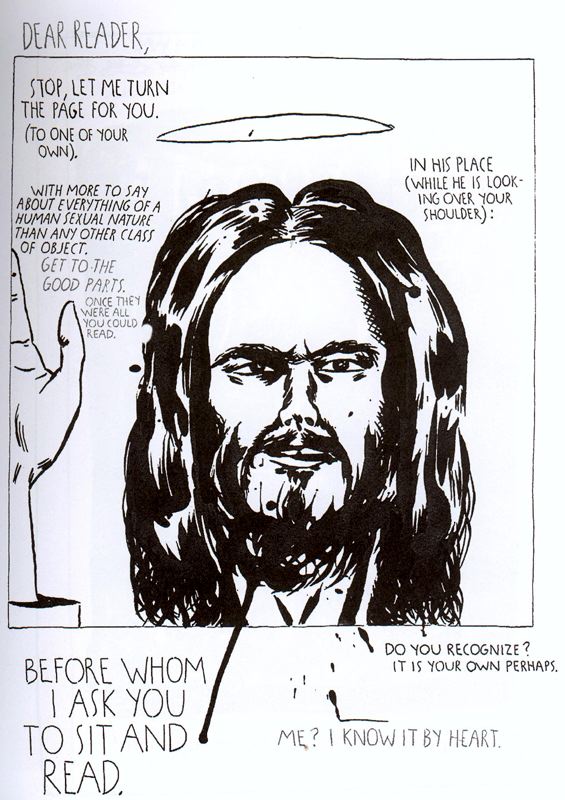 DEAR READER,
STOP, LET ME TURN
THE PAGE FOR YOU.
(TO ONE OF YOUR
OWN).
IN HIS PLACE
(WHILE HE IS LOOK-
ING OVER YOUR
SHOULDER):
WITH MORE TO SAY
ABOUT EVERYTHING OF A
HUMAN SEXUAL NATURE
THAN ANY OTHER CLASS
OF OBJECT.
GET TO THE
GOOD PARTS.
ONCE THEY
WERE ALL
YOU COULD
READ.
BEFORE WHOM
I ASK YOU
TO SIT AND
READ.
DO YOU RECOGNIZE?
IT IS YOUR OWN PERHAPS.
ME? I KNOW IT BY HEART.